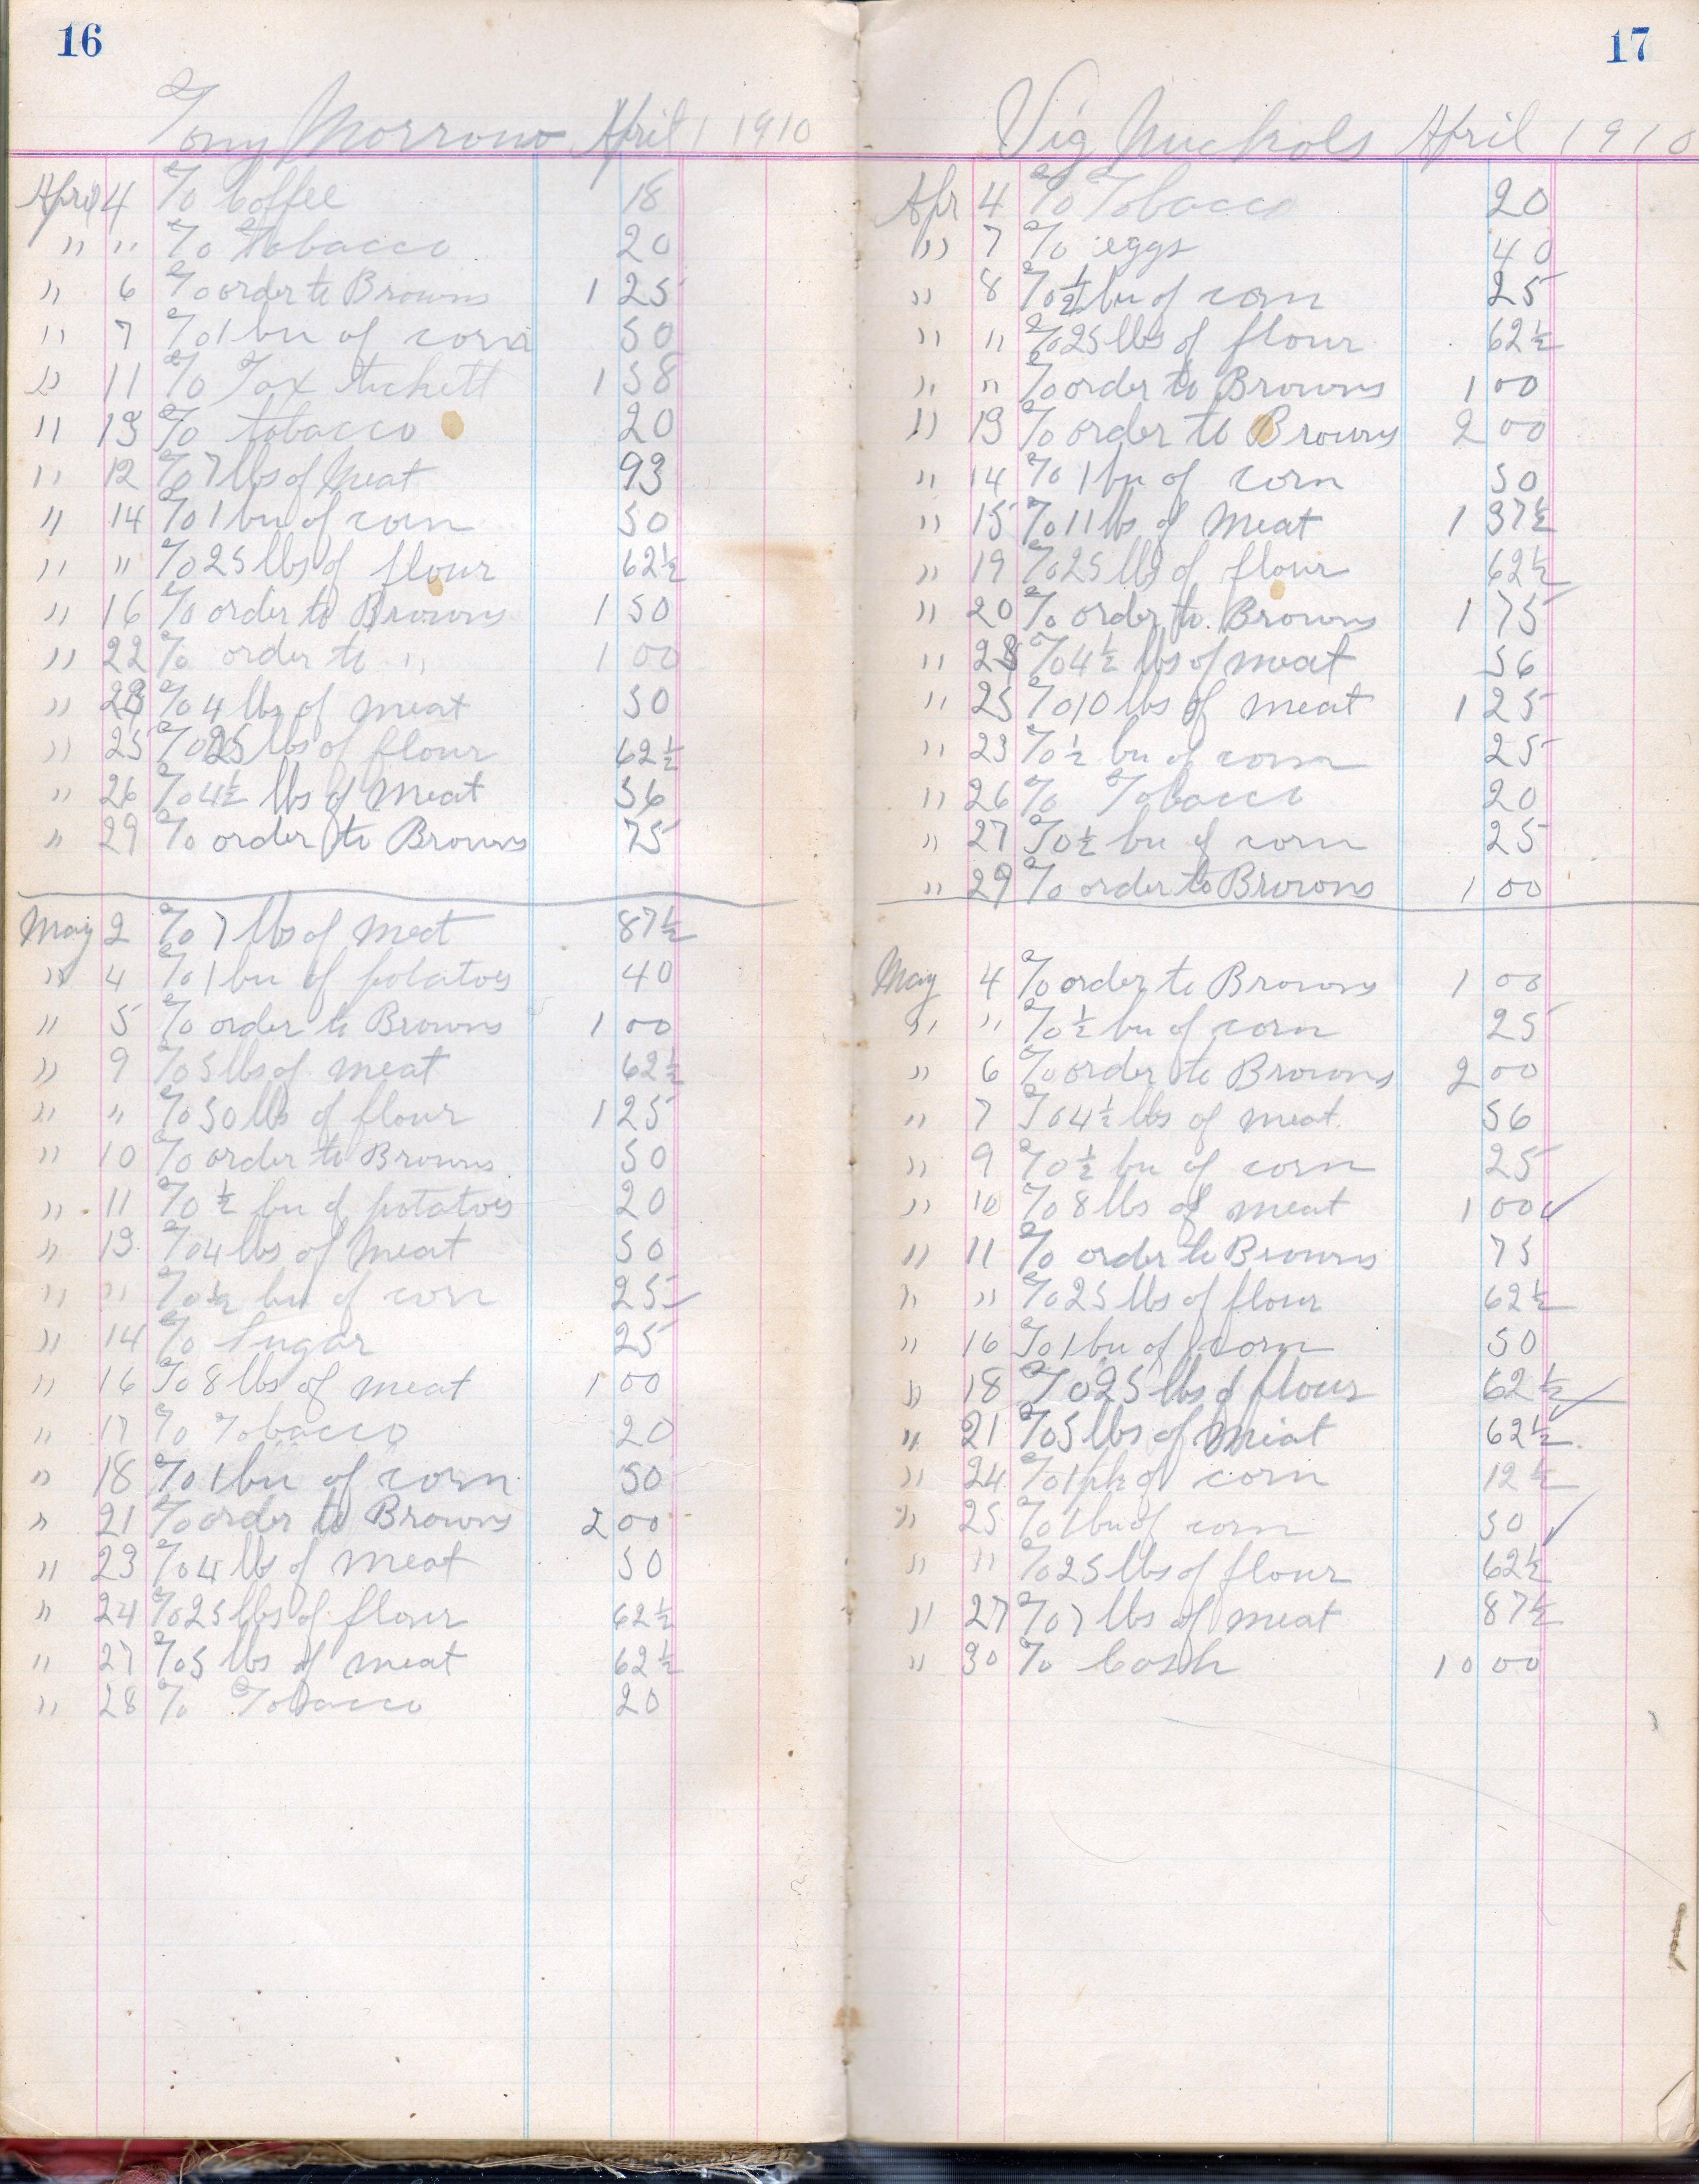 16
Tony Morrow April 1 1910
April 4 To Coffee 18
" " To Tobacco 20
" 6 To order to Browns 1 25
" 7 To 1 bu of corn 50
" 11 To Tax tickett 1 58
" 13 To tobacco 20
" 12 To 7 lbs of Meat 93
" 14 To 1 bu of corn 50
" " To 25 lbs of flour 62½
" 16 To order to Browns 1 50
" 22 To order to " 1 00
" 23 To 4 lbs of meat 50
" 25 To 25 lbs of flour 62½
" 26 To 4½ lbs of Meat 56
" 29 To order to Browns 75
May 2 To 7 lbs of Meat 87½
" 4 To 1 bu of potatoes 40
" 5 To order to Browns 1 00
" 9 To 5 lbs of meat 62½
" " To 50 lbs of flour 1 25
" 10 To order to Browns 50
" 11 To ½ bu of potatoes 20
" 13 To 4 lbs of Meat 50
" " To ½ bu of corn 25
" 14 To Sugar 25
" 16 To 8 lbs of meat 1 00
" 17 To Tobacco 20
" 18 To 1 bu of corn 50
" 21 To order to Browns 2 00
" 23 To 4 lbs of meat 50
" 24 To 25 lbs of flour 62½
" 27 To 5 lbs of meat 62½
" 28 To Tobacco 20
17
Vig Nuckols April 1910
Apr 4 To Tobacco 20
" 7 To eggs 40
" 8 To ½ bu of corn 25
" " To 25 lbs of flour 62½
" " To order to Browns 1 00
" 13 To order to Browns 2 00
" 14 To 1 bu of corn 50
" 15 To 11 lbs of Meat 1 37½
" 19 To 25 lbs of flour 62½
" 20 To order to Browns 1 75
" To 4½ lbs of meat 56
" 25 To 10 lbs of meat 1 25
" 23 To ½ bu of corn 25
" 26 To Tobacco 20
" 27 To ½ bu of corn 25
" 29 To order to Browns 1 00
May 4 To order to Browns 1 00
" " To ½ bu of corn 25
" 6 To order to Browns 2 00
" 7 To 4½ lbs of meat 56
" 9 To ½ bu of corn 25
" 10 To 8 lbs of meat 1 00 ✓
" 11 To order to Browns 75
" " To 25 lbs of flour 62½
" 16 To 1 bu of corn 50
" 18 To 25 lbs of flour 62½
" 21 To 5 lbs of Meat 62½ ✓
" 24 To 1 pk of corn 12½
" 25 To 1 bu of corn 50 ✓
" " To 25 lbs of flour 62½
" 27 To 7 lbs of meat 87½
" 30 To Cash 10 00